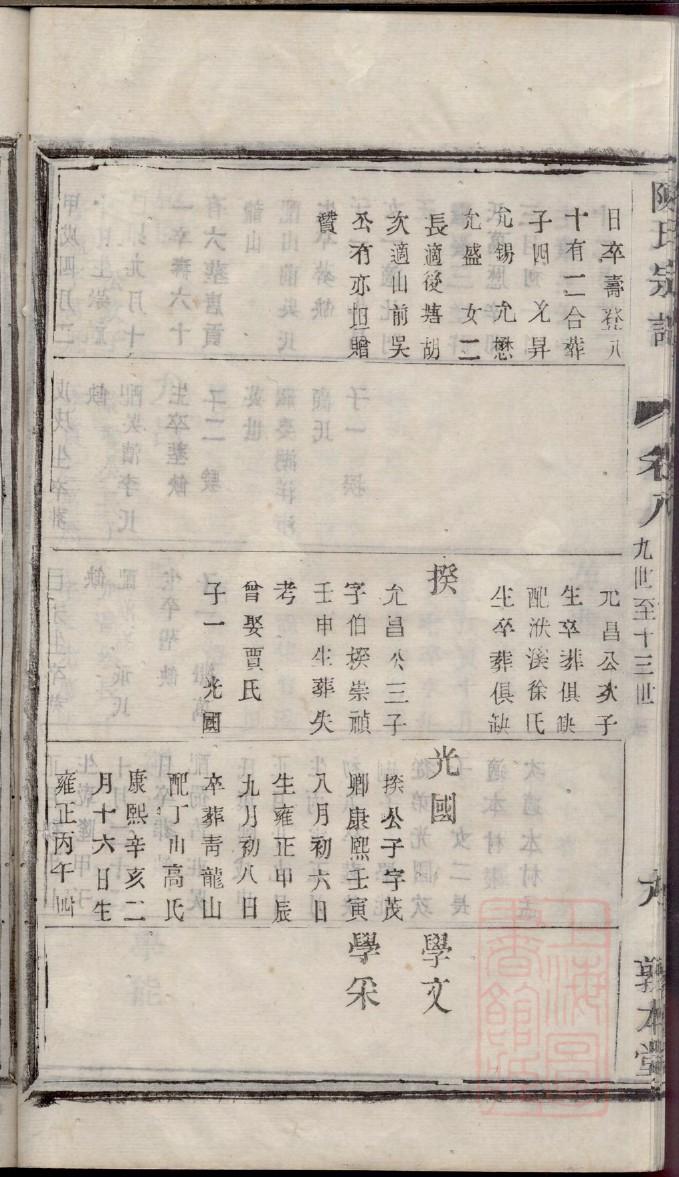 陳氏宗譜
卷八
九世至十三世
九
敦本堂
日卒壽登八
十有二合葬
子四 允昇
允錫 允懋
允盛 女二
長適後塘胡
次適山前吳
公有亦如贈
贊
允昌公次子
生卒葬俱缺
配洑溪徐氏
生卒葬俱缺
揆
允昌公三子
字伯揆崇禎
壬申生葬失
考
曾娶賈氏
子一 光國
光國
揆公子字茂
卿康熙壬寅
八月初六日
生雍正甲辰
九月初八日
卒葬青龍山
配丁山高氏
康熙辛亥二
月十六日生
雍正丙午四
學文
學采